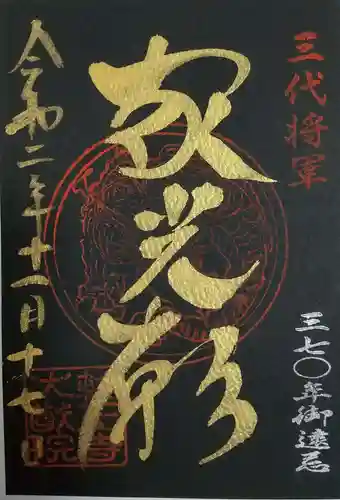 三代将軍
三七〇年御遠忌
家光公
令和二年十一月十七日
輪王寺
大猷院